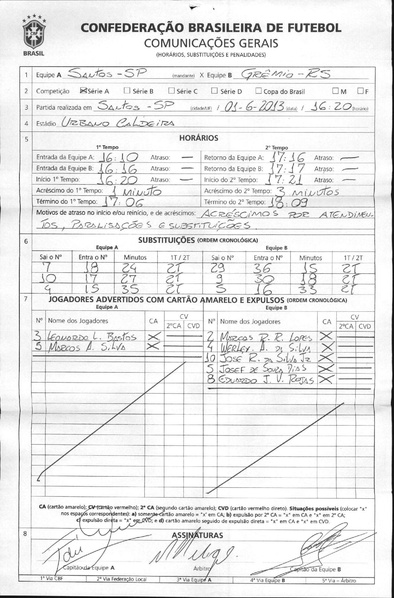 CONFEDERAÇÃO BRASILEIRA DE FUTEBOL
COMUNICAÇÕES GERAIS
(HORÁRIOS, SUBSTITUIÇÕES E PENALIDADES)
BRASIL
1 Equipe A SANTOS - SP (mandante) X Equipe B GRÊMIO - RS
2 Competição X Série A Série B Série C Série D Copa do Brasil M F
3 Partida realizada em SANTOS - SP (cidade/UF) 01-6-2013 (data) 16:20 (horário)
4 Estádio URBANO CALDEIRA
5 HORÁRIOS
1º Tempo 2º Tempo
Entrada da Equipe A: 16:10 Atraso: — Retorno da Equipe A: 17:16 Atraso: —
Entrada da Equipe B: 16:10 Atraso: — Retorno da Equipe B: 17:17 Atraso: —
Início 1º Tempo: 16:20 Atraso: — Início do 2º Tempo: 17:21 Atraso: —
Acréscimo do 1º Tempo: 1 MINUTO Acréscimo do 2º Tempo: 3 MINUTOS
Término do 1º Tempo: 17:06 Término do 2º Tempo: 18:09
Motivos de atraso no início e/ou reinício, e de acréscimos: ACRÉSCIMOS POR ATENDIMEN-
TOS, PARALISAÇÕES E SUBSTITUIÇÕES.
6 SUBSTITUIÇÕES (ORDEM CRONOLÓGICA)
Equipe A Equipe B
Sai o Nº Entra o Nº Min 1T / 2T Sai o Nº Entra o Nº Min 1T / 2T
7 18 24 2T 29 36 15 2T
10 17 27 2T 9 30 18 2T
4 15 35 2T 5 16 33 2T
7 JOGADORES ADVERTIDOS COM CARTÃO AMARELO E EXPULSOS (ORDEM CRONOLÓGICA)
Equipe A Equipe B
Nº Nome dos Jogadores CA CV 2ºCA CVD Nº Nome dos Jogadores CA CV 2ºCA CVD
3 LEONARDO L. BASTOS X 2 MARCOS R. R. LOPES X
5 MARCOS A. SILVA X 4 WERLEY A. DA SILVA X
10 JOSE R. DA SILVA JR X
5 JOSEF DE SOUZA DIAS X
8 EDUARDO J. V. ROJAS X
CA (cartão amarelo); CV (cartão vermelho); 2º CA (segundo cartão amarelo); CVD (cartão vermelho direto). Situações possíveis (colocar "x"
nos espaços correspondentes): a) somente cartão amarelo = "x" em CA; b) expulsão por 2º CA = "x" em CA e "x" em 2º CA;
c) expulsão direta = "x" em CVD; e d) cartão amarelo seguido de expulsão direta = "x" em CA e "x" em CVD.
8 ASSINATURAS
Capitão da Equipe A Árbitro Capitão da Equipe B
1ª Via CBF 2ª Via Federação Local 3ª Via Equipe A 4ª Via Equipe B 5ª Via - Árbitro